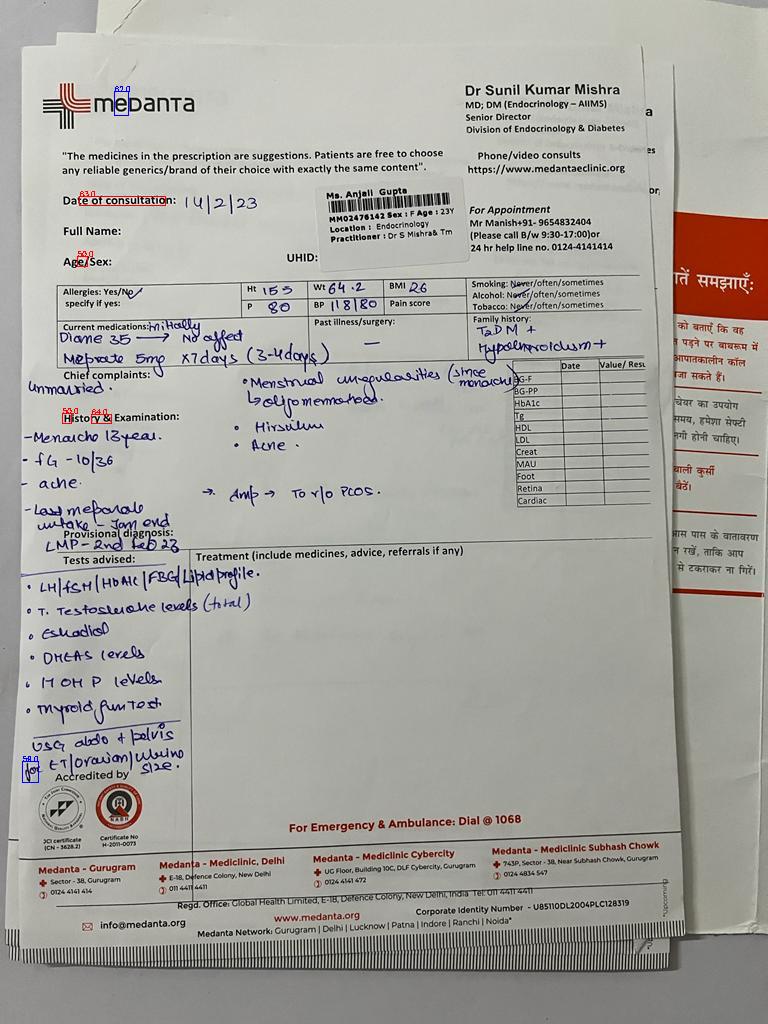 medanta
Dr Sunil Kumar Mishra
MD; DM (Endocrinology – AIIMS)
Senior Director
Division of Endocrinology & Diabetes
"The medicines in the prescription are suggestions. Patients are free to choose
any reliable generics/brand of their choice with exactly the same content".
Phone/video consults
https://www.medantaeclinic.org
Date of consultation: 14/2/23
Ms. Anjali Gupta
MM02476142 Sex : F Age : 23Y
Location : Endocrinology
Practitioner : Dr S Mishra& Tm
For Appointment
Mr Manish+91- 9654832404
(Please call B/w 9:30-17:00)or
24 hr help line no. 0124-4141414
Full Name:
Age/Sex:
UHID:
Allergies: Yes/No
specify if yes:
Ht 155 Wt 64.2 BMI 26
P 80 BP 118/80 Pain score
Smoking: Never/often/sometimes
Alcohol: Never/often/sometimes
Tobacco: Never/often/sometimes
Current medications: Initially
Diane 35 → No affect
Meprate 5mg x7days (3-4days)
Past illness/surgery:
—
Family history:
T2DM +
Hypothyroidism +
Chief complaints:
Unmarried.
• Menstrual irregularities (since menarche)
↳ oligomenorrhoea.
• Hirsutism
• Acne.
Date Value/ Resu
BG-F
BG-PP
HbA1c
Tg
HDL
LDL
Creat
MAU
Foot
Retina
Cardiac
History & Examination:
- Menarche 13year.
- fG - 10/36
- acne.
- Last meprate
intake - Jan end
LMP - 2nd Feb 23
→ Amp → To r/o PCOS.
Provisional diagnosis:
Tests advised:
Treatment (include medicines, advice, referrals if any)
• LH/fSH/HbA1C/FBG/Lipid profile.
• T. Testosterone levels (total)
• Estradiol
• DHEAS levels
• 17 OH P levels.
• Thyroid fun Test
USG abdo + pelvis
for ET/ovarian/uterine
size.
Accredited by
JCI certificate
(CN - 3628.2)
Certificate No
H-2011-0073
For Emergency & Ambulance: Dial @ 1068
Medanta - Gurugram
Sector - 38, Gurugram
0124 4141 414
Medanta - Mediclinic, Delhi
E-18, Defence Colony, New Delhi
011 4411 4411
Medanta - Mediclinic Cybercity
UG Floor, Building 10C, DLF Cybercity, Gurugram
0124 4141 472
Medanta - Mediclinic Subhash Chowk
743P, Sector - 38, Near Subhash Chowk, Gurugram
0124 4834 547
Regd. Office: Global Health Limited, E-18, Defence Colony, New Delhi, India Tel: 011 4411 4411
info@medanta.org
www.medanta.org
Corporate Identity Number - U85110DL2004PLC128319
Medanta Network: Gurugram | Delhi | Lucknow | Patna | Indore | Ranchi | Noida*
*Upcoming
तें समझाएँ:
को बताएँ कि वह
पड़ने पर बाथरूम में
आपातकालीन कॉल
जा सकते हैं।
चेयर का उपयोग
समय, हमेशा सेफ्टी
गी होनी चाहिए।
वाली कुर्सी
बैठें।
आस पास के वातावरण
न रखें, ताकि आप
से टकराकर ना गिरें।